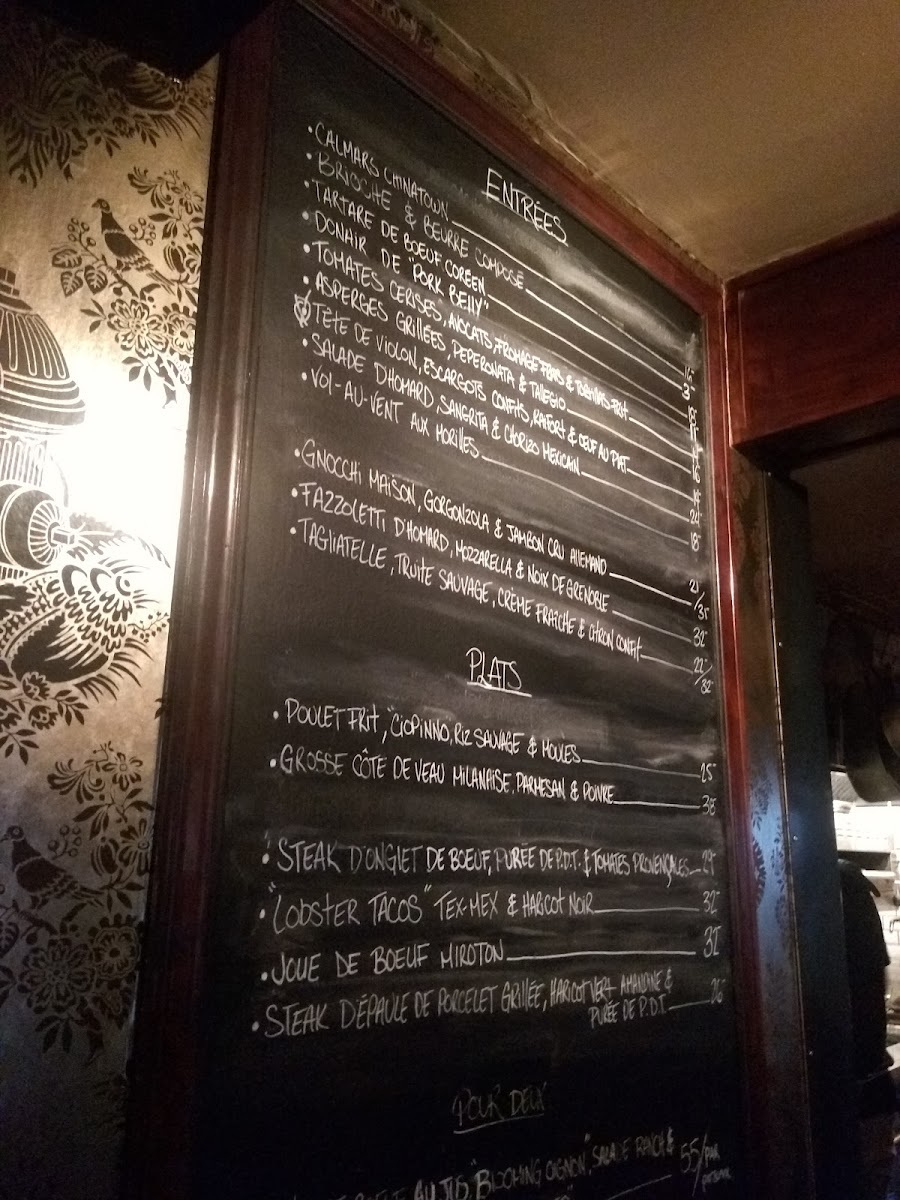 ENTRÉES
• CALMARS CHINATOWN
• BRIOCHE & BEURRE COMPOSÉ 3
• TARTARE DE BOEUF CORÉEN
• DONAIR DE "PORK BELLY"
• TOMATES CERISES, AVOCATS, FROMAGE FRAIS & TORTILLAS FRIT
• ASPERGES GRILLÉES, PEPERONATA & TALEGIO
TÊTE DE VIOLON, ESCARGOTS CONFITS, RAIFORT & OEUF AU PLAT
• SALADE D'HOMARD, SANGRITA & CHORIZO MEXICAIN 24
• VOL-AU-VENT AUX MORILLES 18
• GNOCCHI MAISON, GORGONZOLA & JAMBON CRU ALLEMAND 21/35
• FAZZOLETTI D'HOMARD, MOZZARELLA & NOIX DE GRENOBLE 32
• TAGLIATELLE, TRUITE SAUVAGE, CRÈME FRAÎCHE & CITRON CONFIT 22/32
PLATS
• POULET FRIT, "CIOPINNO, RIZ SAUVAGE & MOULES 25
• GROSSE CÔTE DE VEAU MILANAISE, PARMESAN & POIVRE 38
• STEAK D'ONGLET DE BOEUF, PURÉE DE P.D.T. & TOMATES PROVENÇALES 29
• "LOBSTER TACOS" TEX-MEX & HARICOT NOIR 32
• JOUE DE BOEUF MIROTON 32
• STEAK D'ÉPAULE DE PORCELET GRILLÉE, HARICOT VERT AMANDINE & 26
PURÉE DE P.D.T.
POUR DEUX
AU JUS "BLOOMING OIGNON", SALADE RANCH & 55/par